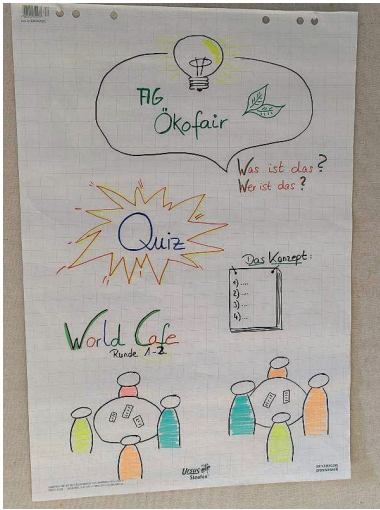 FIG
Ökofair
Was ist das?
Wer ist das?
Quiz
Das Konzept:
1)....
2)....
3)....
4)....
World Cafe
Runde 1-2
Ursus